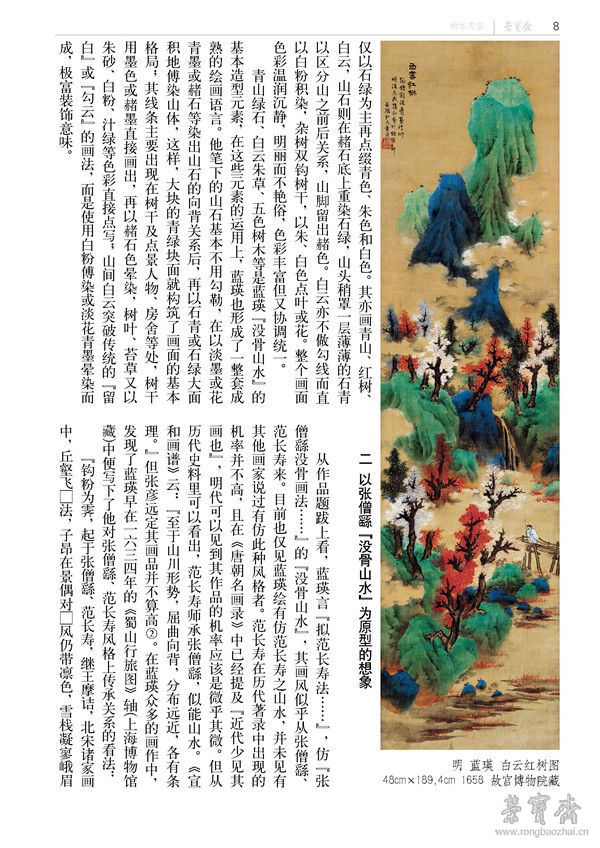 物华天宝
荣宝斋
8
仅以石绿为主再点缀青色、朱色和白色。其亦画青山、红树、
白云，山石则在赭石底上重染石绿，山头稍罩一层薄薄的石青
以区分山之前后关系，山脚留出赭色。白云亦不做勾线而直
以白粉积染，杂树双钩树干，以朱、白色点叶或花。整个画面
色彩温润沉静，明丽而不艳俗，色彩丰富但又协调统一。
青山绿石、白云朱草、五色树木等是蓝瑛『没骨山水』的
基本造型元素，在这些元素的运用上，蓝瑛也形成了一整套成
熟的绘画语言。他笔下的山石基本不用勾勒，在以淡墨或花
青墨或赭石等染出山石的向背关系后，再以石青或石绿大面
积地傅染山体，这样，大块的青绿块面就构筑了画面的基本
格局；其线条主要出现在树干及点景人物、房舍等处，树干
用墨色或赭墨直接画出，再以赭石色晕染，树叶、苔草又以
朱砂、白粉、汁绿等色彩直接点写；山间白云突破传统的『留
白』或『勾云』的画法，而是使用白粉傅染或淡花青墨晕染而
成，极富装饰意味。
二 以张僧繇『没骨山水』为原型的想象
从作品题跋上看，蓝瑛言『拟范长寿法……』，仿『张
僧繇没骨画法……』的『没骨山水』，其画风似乎从张僧繇、
范长寿来。目前也仅见蓝瑛绘有仿范长寿之山水，并未见有
其他画家说过有仿此种风格者。范长寿在历代著录中出现的
机率并不高，且在《唐朝名画录》中已经提及『近代少见其
画也』，明代可以见到其作品的机率应该是微乎其微。但从
历代史料里可以看出，范长寿师承张僧繇，似能山水。《宣
和画谱》云：『至于山川形势，屈曲向背，分布远近，各有条
理。』但张彦远定其画品并不算高②。在蓝瑛众多的画作中，
发现了蓝瑛早在一六三四年的《蜀山行旅图》轴（上海博物馆
藏）中便写下了他对张僧繇、范长寿风格上传承关系的看法：
『钩粉为雲，起于张僧繇、范长寿，继王摩诘，北宋诸家画
中，丘壑飞□法，子昂在景偶对□风仍带凛色，雪栈凝寥峨眉
白雲红树
明 蓝瑛 白云红树图
48cm×189.4cm 1658 故宫博物院藏
荣宝斋
www.rongbaozhai.cn